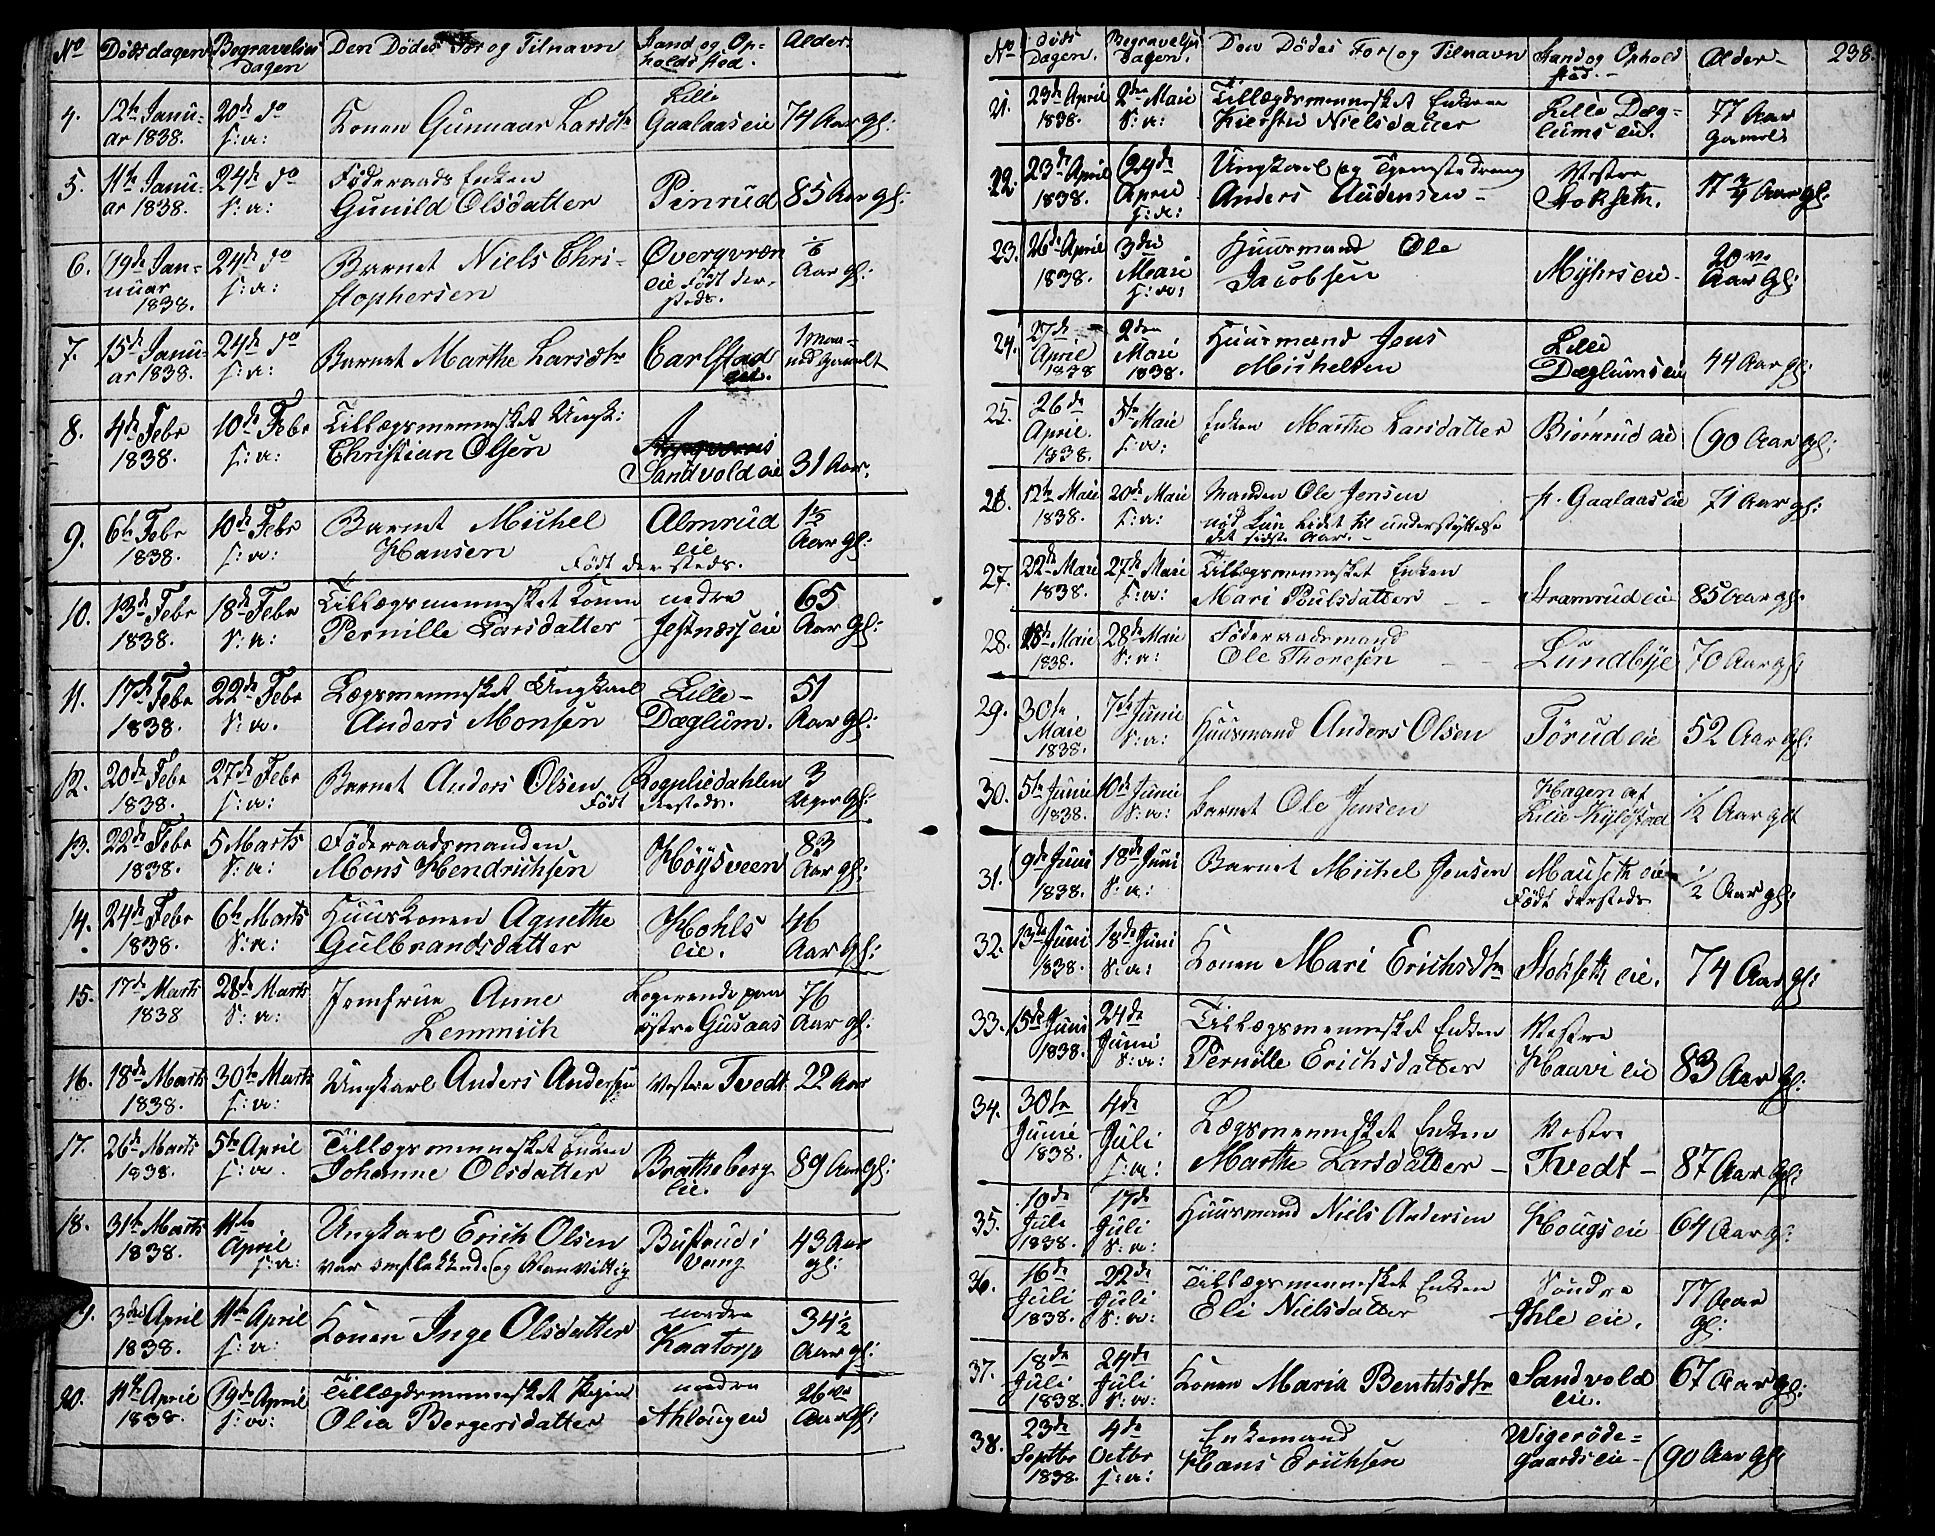 No Dödsdagen Begravelses Dagen Den Dödes For og Tilnavn Stand og Opholdssted. Alder.
4. 12te Januar 1838. 20de do s: a: Konen Gunnaar Larsdtr Lille Gaalaas eie 74 Aar gl:
5. 11te Januar 1838. 24de do s: a: Föderaads Enken Gunild Olsdatter Pinrud 85 Aar gl:
6. 19de Januar 1838. 24de do s: a: Barnet Niels Christophersen eie Födt dersteds. Aar gl:
7. 15de Januar 1838. 24de do s: a: Barnet Marthe Larsdtr Carlstad eie. 1 Maaned Gamelt
8. 4de Febr 1838. 10de Febr s: a: Tillægsmennesket Ungk: Christian Olsen Sandvold eie 31 Aar.
9. 6te Febr 1838. 10de Febr s: a: Barnet Michel Hansen Almrud eie Födt dersteds. Aar gl:
10. 13de Febr 1838. 18de Febr s: a: Tillægsmennesket Konen Pernille Larsdatter nedre Jesnæs eie 65 Aar gl:
11. 17de Febr 1838. 22de Febr s: a. Lægsmennesket Ungkarl Anders Monsen Lille Dæglum. 51 Aar gl:
12. 20de Febr 1838. 27de Febr s: a: Barnet Anders Olsen Födt dersteds. 3 Uger gl:
13. 22de Febr 1838. 5 Marts s: a: Föderaadsmanden Mons Hendrichsen Höysveen 83 Aar gl:
14. 24de Febr 1838. 6te Marts s: a: Huuskonen Agnethe Gulbrandsdatter Hohls eie. 46 Aar gl:
15. 17de Marts 1838 28de Marts s: a: Jomfrue Anne Lemmich Logerende paa östre Gusaas 76 Aar gl:
16. 18de Marts 1838. 30te Marts s: a: Ungkarl Anders Andersen Vestre Tvedt 22 Aar
17. 26de Marts 1838. 5te April s: a. Tillægsmennesket Enken Johanne Olsdatter Bratheberg eie. 89 Aar gl:
18. 31te Marts 1838. 11te April s: a: Ungkarl Erich Olsen var omflakkende og Vanvittig Bustrud i Vang 43 Aar gl:
3die April 1838. 11te April s: a: Konen Inge Olsdatter nordre Kaatorp 34 1/2 Aar gl:
20. 11te April 1838. 19de April s: a: Tillægdsmennesket Pigen Olea Bergersdatter nordre 26 Aar gl:
No Döds Dagen. Begravelses Dagen. Den Dödes For og Tilnavn Stand og Ophold sted. Alder 238.
21. 23de April 1838. 2den Maie s: a: Tillægdsmennesket Enken Kiersti Nielsdatter Lille Dæglums eie. 77 Aar Gamel
22. 23de April 1838. 29de April s: a: Ungkarl og Tjenestedreng Anders Audensen Vestre Stokseth. 17 3/4 Aar gl:
23. 26de April 1838. 3die Maie s: a: Huusmand Ole Jacobsen Myhrs eie Aar gl:
24. 27de April 1838 2den Maie 1838. Huusmand Jens Michelsen Lille Dæglums eie 44 Aar gl:
25. 26de April. 1838. 5te Maie s: a: Enken Marthe Larsdatter Biörnrud eie 90 Aar gl:
26. 12te Maie 1838. 20de Maie s: a: Manden Ole Jensen nød kun Lidet til understyttelse det sidste Aar. Gaalaas eie 71 Aar gl:
27. 22de Maie 1838. 27de Maie s: a: Tillægsmennesket Enken Mari Poulsdatter Stramrud eie 85 Aar gl:
28. 18te Maie 1838. 28de Maie s: a: Föderaadsmand Ole Thoresen Lundbye 70 Aar gl:
29. 30te Maie 1838. 7de Junie s: a: Huusmand Anders Olsen Törud eie 52 Aar gl:
30. 5te Junie 1838. 10de Junie s: a: Barnet Ole Jensen Hagen af Lille Kylstad 1/2 Aar glt
31. 9de Juni 1838. 18de Juni s: a: Barnet Michel Jensen Mauseth eie Födt dersteds 1/2 Aar gl:
32. 13de Juni 1838. 18de Juni s: a: Konen Mari Erichsdtr Stokseth eie. 74 Aar gl:
33. 15de Juni 1838. 24de Junie s: a: Tillægsmennesket Enken Pernille Erichsdatter Vestre Haavi eie 83 Aar gl:
34. 30te Junie 1838. 4de Juli s: a: Lægsmennesket Enken Marthe Larsdatter Vestre Tvedt 87 Aar gl:
35. 10de Juli 1838. 17de Juli s: a: Huusmand Niels Andersen Hougs eie 64 Aar gl:
36. 16de Juli 1838. 22de Juli s: a: Tillægsmennesket Enken Eli Nielsdatter Söndre Ihle eie. 77 Aar gl:
37. 18de Juli 1838. 24de Juli s: a: Konen Maria Bentsdtr Sandvold eie. 67 Aar gl:
38. 23de Septbr 1838. 4de Octbr s: a: Enkemand Hans Erichsen Wigerödegaards eie 90 Aar gl: